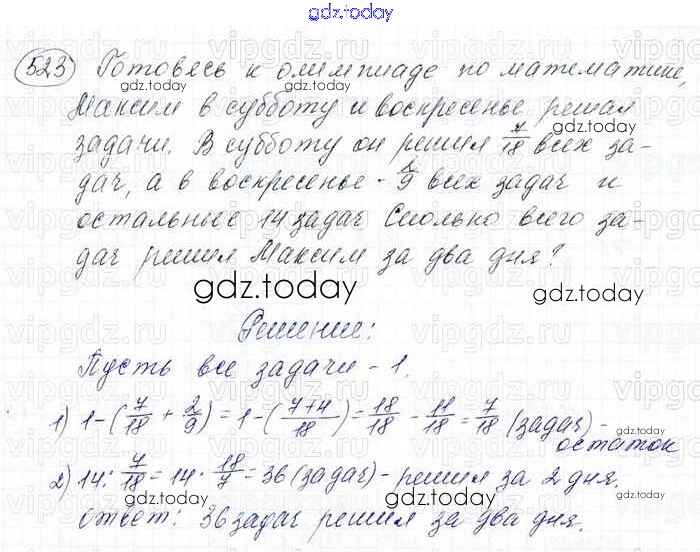 gdz.today
523 Готовясь к олимпиаде по математике,
Максим в субботу и воскресенье решал
gdz.today
задачи. В субботу он решил 7/18 всех за-
дач, а в воскресенье - 2/9 всех задач и
gdz.today
остальные 14 задач Сколько всего за-
дач решил Максим за два дня?
gdz.today
gdz.today
Решение:
Пусть все задачи - 1.
1) 1-(7/18 + 2/9) = 1-((7+4)/18) = 18/18 - 11/18 = 7/18 (задач) -
gdz.today
остаток
2) 14 : 7/18 = 14 · 18/7 = 36 (задач) - решил за 2 дня.
gdz.today
gdz.today
ответ: 36 задач решил за два дня.